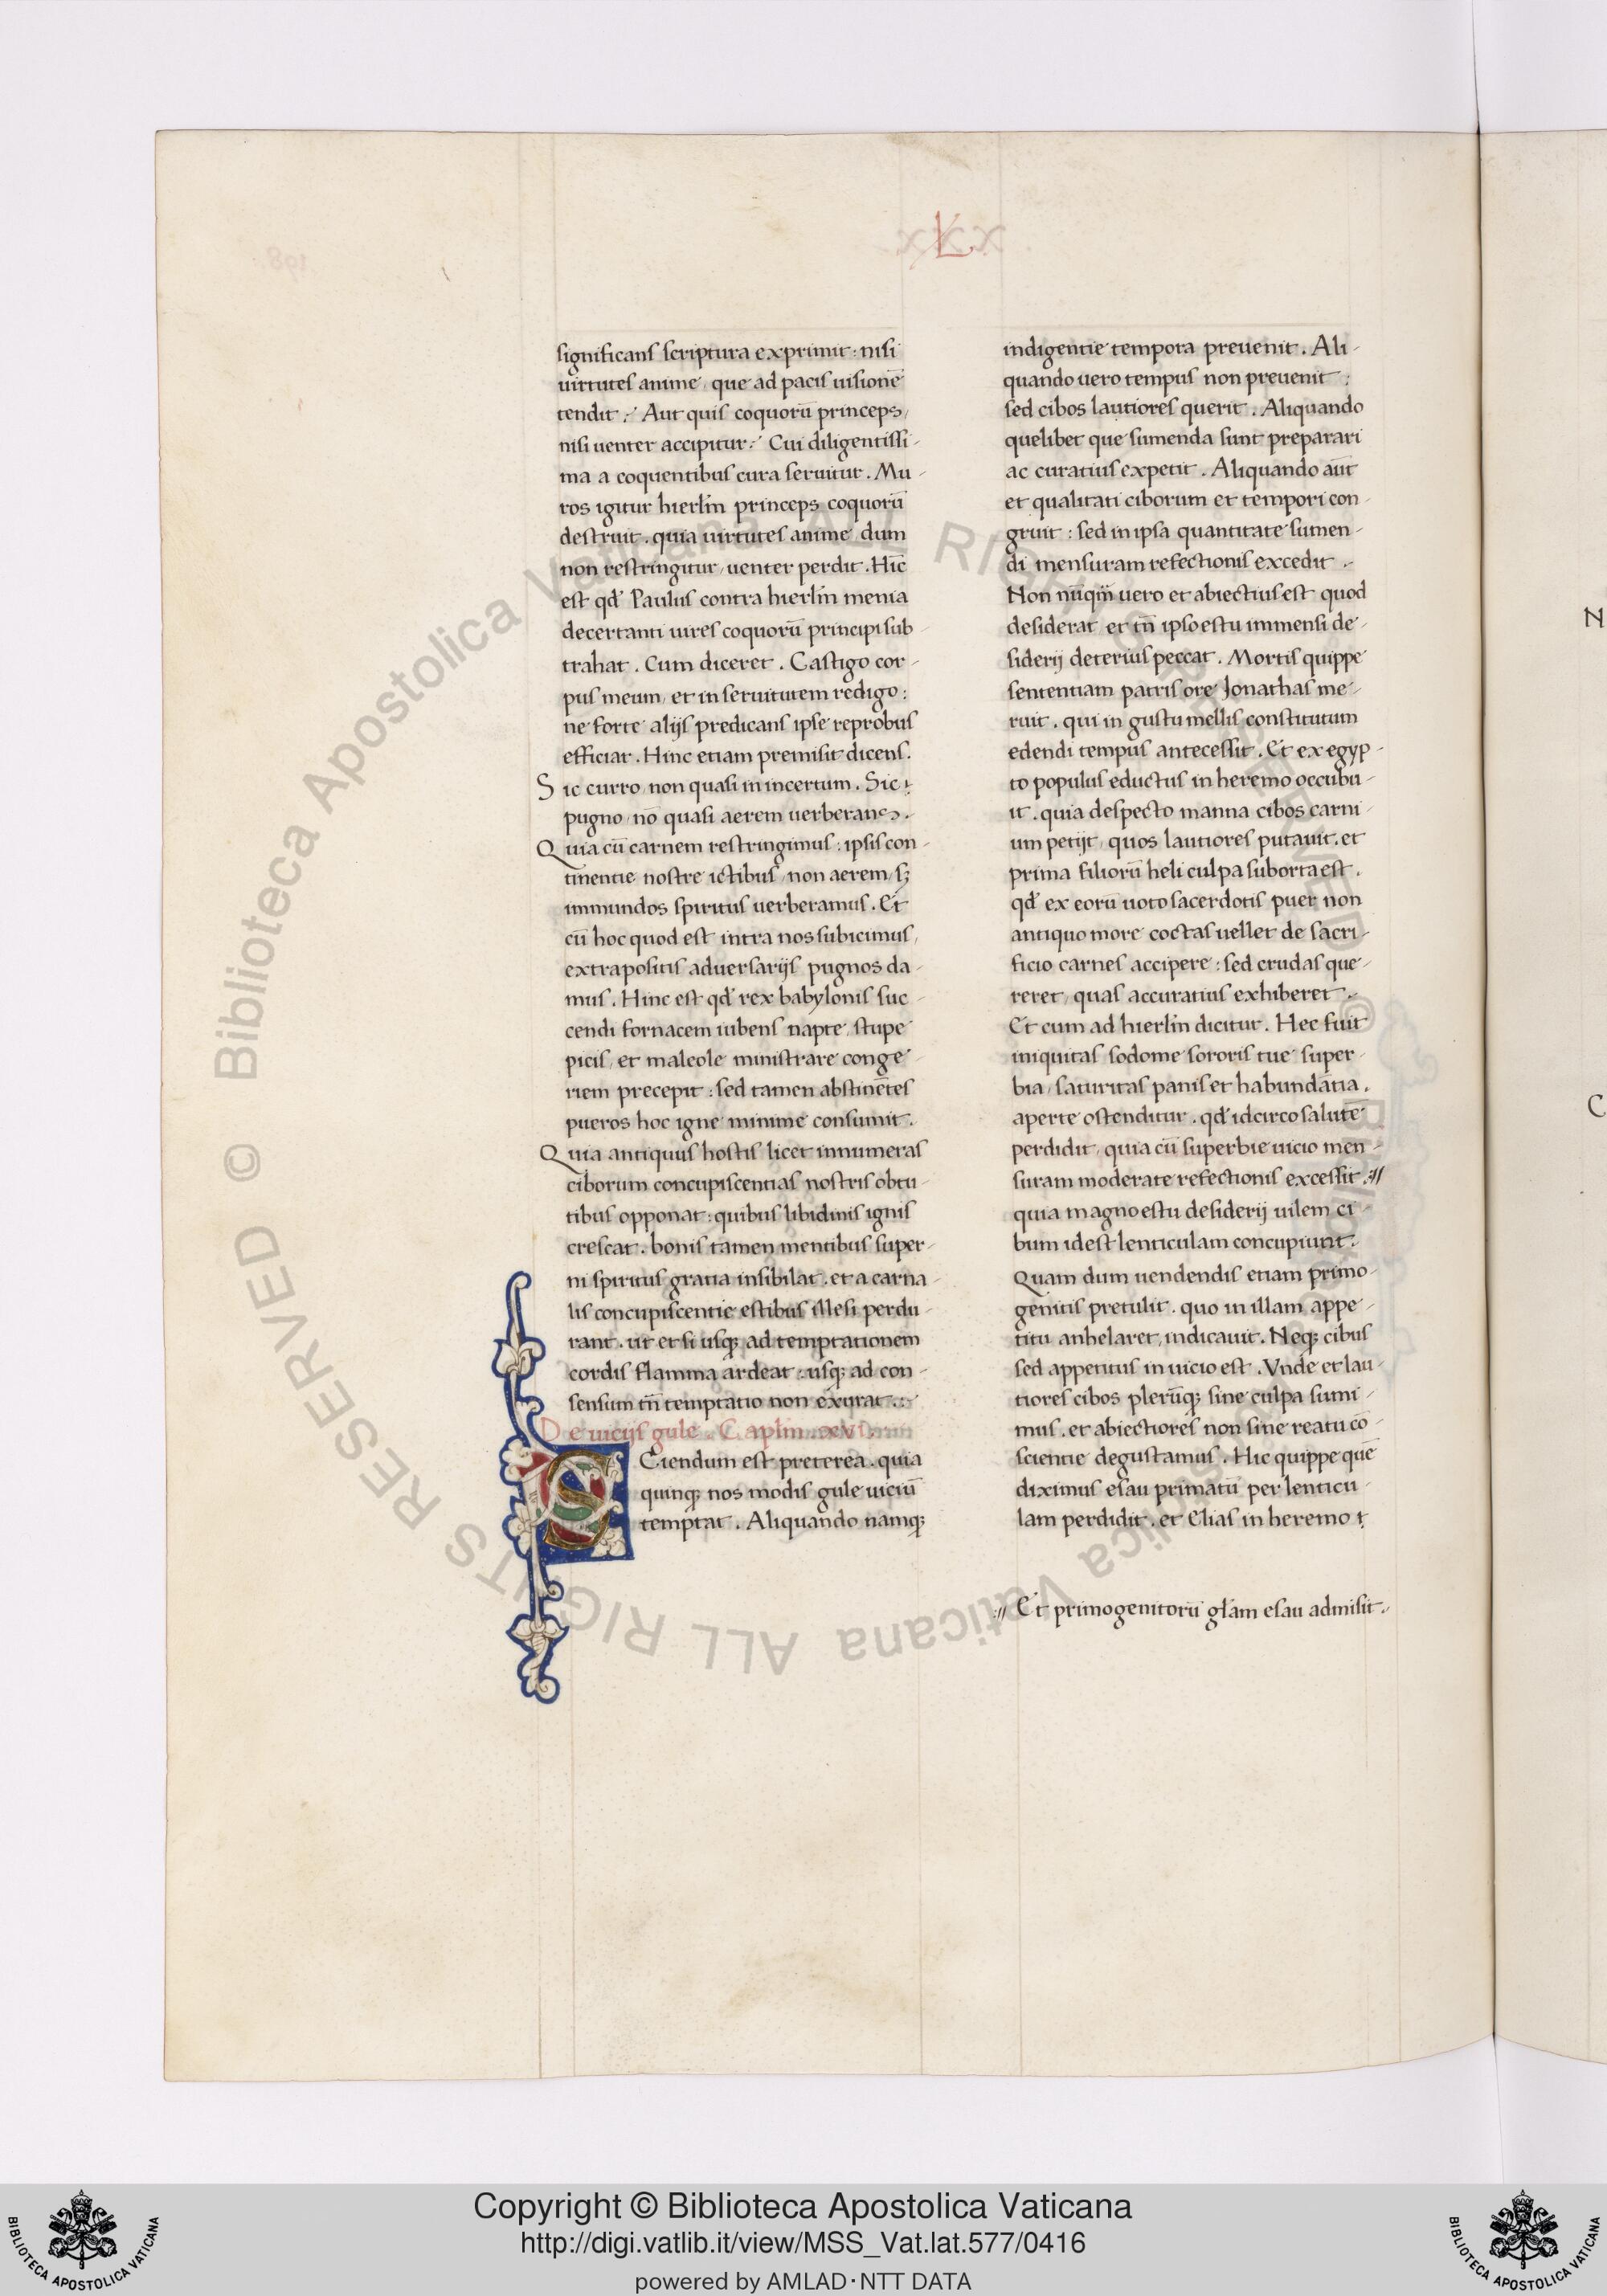 L
significans scriptura exprimit: nisi
uirtutes anime, que ad pacis uisionē
tendit:́ Aut quis coquorū princeps,
nisi uenter accipitur:́ Cui diligentissi-
ma a coquentibus cura seruitur. Mu-
ros igitur hierl̄m princeps coquorū
destruit. quia uirtutes anime, dum
non restringitur, uenter perdit. Hīc
est qd̛ Paulus contra hierl̄m menia
decertanti uires coquorū principi sub-
trahat. Cum diceret. Castigo cor-
pus meum, et in seruitutem redigo:
ne forte alijs predicans ipse reprobus
efficiar. Hinc etiam premisit dicens.
Sic curro, non quasi in incertum. Sic
pugno, nō quasi aerem uerberans.
Quia cū carnem restringimus: ipsis con-
tinentie nostre ictibus, non aerem, sꝫ
immundos spiritus uerberamus. Et
cū hoc quod est intra nos subicimus,
extra positis aduersarijs pugnos da-
mus. Hinc est qd̛ rex babylonis suc-
cendi fornacem iubens napte, stupe
picis, et maleole ministrare conge-
riem precepit: sed tamen abstinētes
pueros hoc igne minime consumit.
Quia antiquus hostis licet innumeras
ciborum concupiscentias nostris obtu-
tibus opponat: quibus libidinis ignis
crescat. bonis tamen mentibus super-
ni spiritus gratia insibilat. et a carna-
lis concupiscentie estibus illesi perdu-
rant. ut et si usqꝫ ad temptationem
cordis flamma ardeat: usqꝫ ad con-
sensum tn̄ temptatio non exurat.:
De uicijs gule. Caplm. xvi.
SCiendum est preterea. quia
quinqꝫ nos modis gule uiciū
temptat. Aliquando namqꝫ
indigentie tempora preuenit. Ali-
quando uero tempus non preuenit:
sed cibos lautiores querit. Aliquando
quelibet que sumenda sunt preparari
ac curatius expetit. Aliquando aūt
et qualitati ciborum et tempori con-
gruit: sed in ipsa quantitate sumen-
di mensuram refectionis excedit.
Non nūqm̄ uero et abiectius est quod
desiderat et tn̄ ipso estu immensi de-
siderij deterius peccat. Mortis quippe
sententiam patris ore Jonathas me-
ruit. qui in gustu mellis constitutum
edendi tempus antecessit. Et ex egyp-
to populus eductus in heremo occubu-
it. quia despecto manna cibos carni-
um petijt, quos lautiores putauit. et
prima filiorū heli culpa suborta est.
qd̛ ex eorū uoto sacerdotis puer non
antiquo more coctas uellet de sacri-
ficio carnes accipere: sed crudas que-
reret, quas accuratius exhiberet.
Et cum ad hierl̄m dicitur. Hec fuit
iniquitas sodome sororis tue super-
bia, saturitas panis et habundātia.
aperte ostenditur. qd̛ idcirco salutē
perdidit, quia cū superbie uicio men-
suram moderate refectionis excessit.://
quia magno estu desiderij uilem ci-
bum idest lenticulam concupiunt.
Quam dum uendendis etiam primo-
genitis pretulit. quo in illam appe-
titu anhelaret, indicauit. Neqꝫ cibus
sed appetitus in uicio est. Vnde et lau-
tiores cibos plerūqꝫ sine culpa sumi-
mus. et abiectiores non sine reatu cō-
scientie degustamus. Hic quippe quē
diximus esau primatū per lenticu-
lam perdidit. et Elias in heremo
:// Et primogenitorū gl̄am esau admisit.
N
C
© Biblioteca Apostolica Vaticana ALL RIGHTS RESERVED © Biblioteca Apostolica Vaticana ALL RIGHTS RESERVED
BIBLIOTECA APOSTOLICA VATICANA
Copyright © Biblioteca Apostolica Vaticana
http://digi.vatlib.it/view/MSS_Vat.lat.577/0416
powered by AMLAD·NTT DATA
BIBLIOTECA APOSTOLICA VATICANA